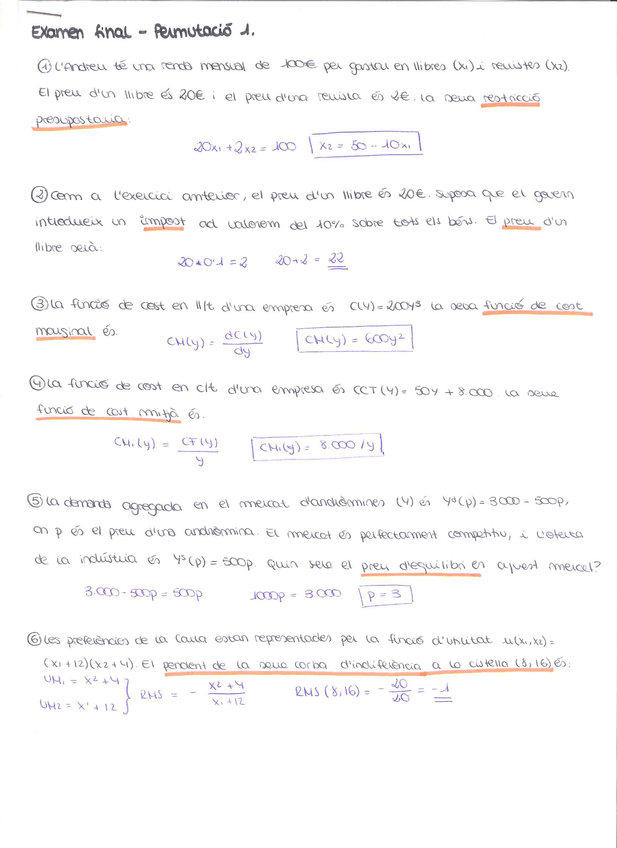 Examen final - Permutació 1.
① L'Andreu té una renda mensual de 100€ per gastar en llibres (x1) i revistes (x2).
El preu d'un llibre és 20€ i el preu d'una revista és 2€. La seua restricció
presupostaria:
20x1 + 2x2 = 100 x2 = 50 - 10x1
② Com a l'exercici anterior, el preu d'un llibre és 20€. Suposa que el govern
introdueix un impost ad valorem del 10% sobre tots els béns. El preu d'un
llibre serà:
20*0'1 = 2 20+2 = 22
③ La funció de cost en ll/t d'una empresa és C(Y) = 200Y³. La seva funció de cost
marginal és.
CM(y) = dC(y)/dy CM(y) = 600y²
④ La funció de cost en c/t d'una empresa és CCT(Y) = 50Y + 8.000. La seue
funció de cost mitjà és.
CMi(y) = CT(y)/y CMi(y) = 8.000/y
⑤ La demanda agregada en el mercat d'andròmines (Y) és Yd(p) = 3000 - 500p,
on p és el preu d'una andròmina. El mercat és perfectament competitiu, i l'oferta
de la indústria és Ys(p) = 500p. Quin sera el preu d'equilibri en aquest mercat?
3.000 - 500p = 500p 1000p = 3000 p = 3
⑥ Les preferències de la Carla estan representades per la funció d'utilitat u(x1,x2) =
(x1+12)(x2+4). El pendent de la seue corba d'indiferència a la cistella (8,16) és:
UM1 = x2+4 } RMS = - x2+4/x1+12 RMS(8,16) = - 20/20 = -1
UM2 = x1+12